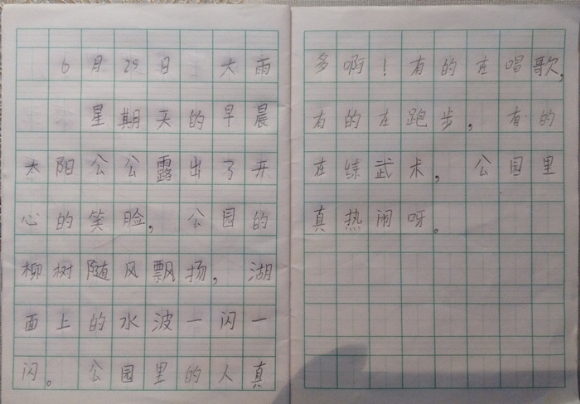 6月29日 大雨
星期天的早晨
太阳公公露出了开
心的笑脸，公园的
柳树随风飘扬，湖
面上的水波一闪一
闪。公园里的人真
多啊！有的在唱歌，
有的在跑步，有的
在练武术，公园里
真热闹呀。